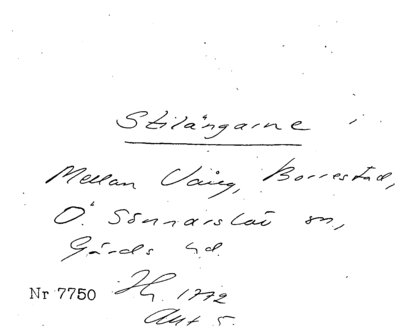 Stilängarne
Mellan Vång, Borrestad,
Ö. Sönnarslöv sn,
Gärds hd.
Nr 7750 Jh. 1772
Akt 5.